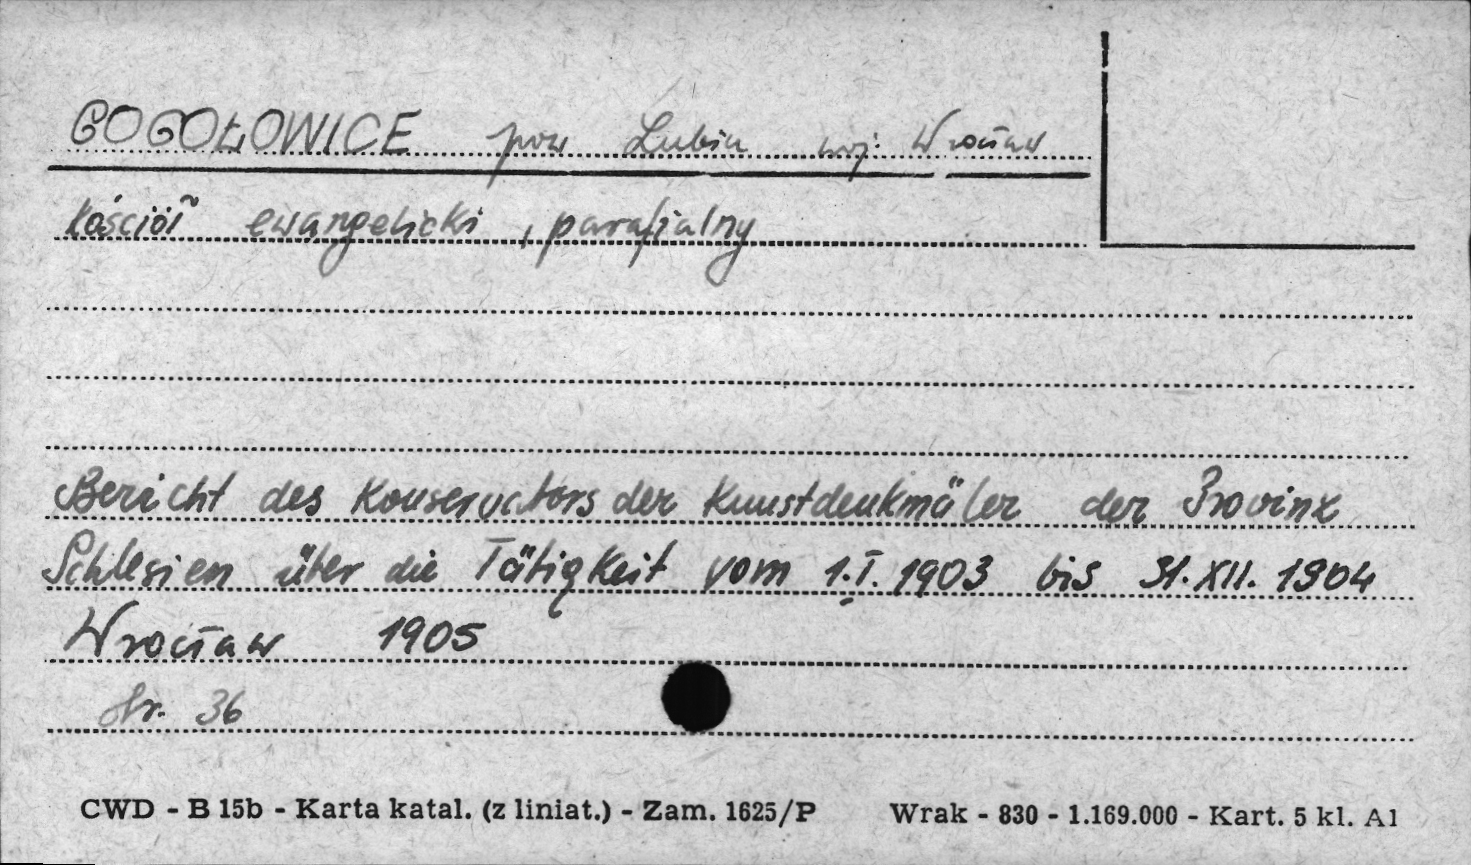 GOGOŁOWICE pow Lubin woj. Wrocław
kościół ewangelicki, parafialny
Bericht des Konservators der Kunstdenkmäler der Provinz
Schlesien über die Tätigkeit vom 1.I.1903 bis 31.XII.1904
Wrocław 1905
str. 36
CWD - B 15b - Karta katal. (z liniat.) - Zam. 1625/P Wrak - 830 - 1.169.000 - Kart. 5 kl. A1